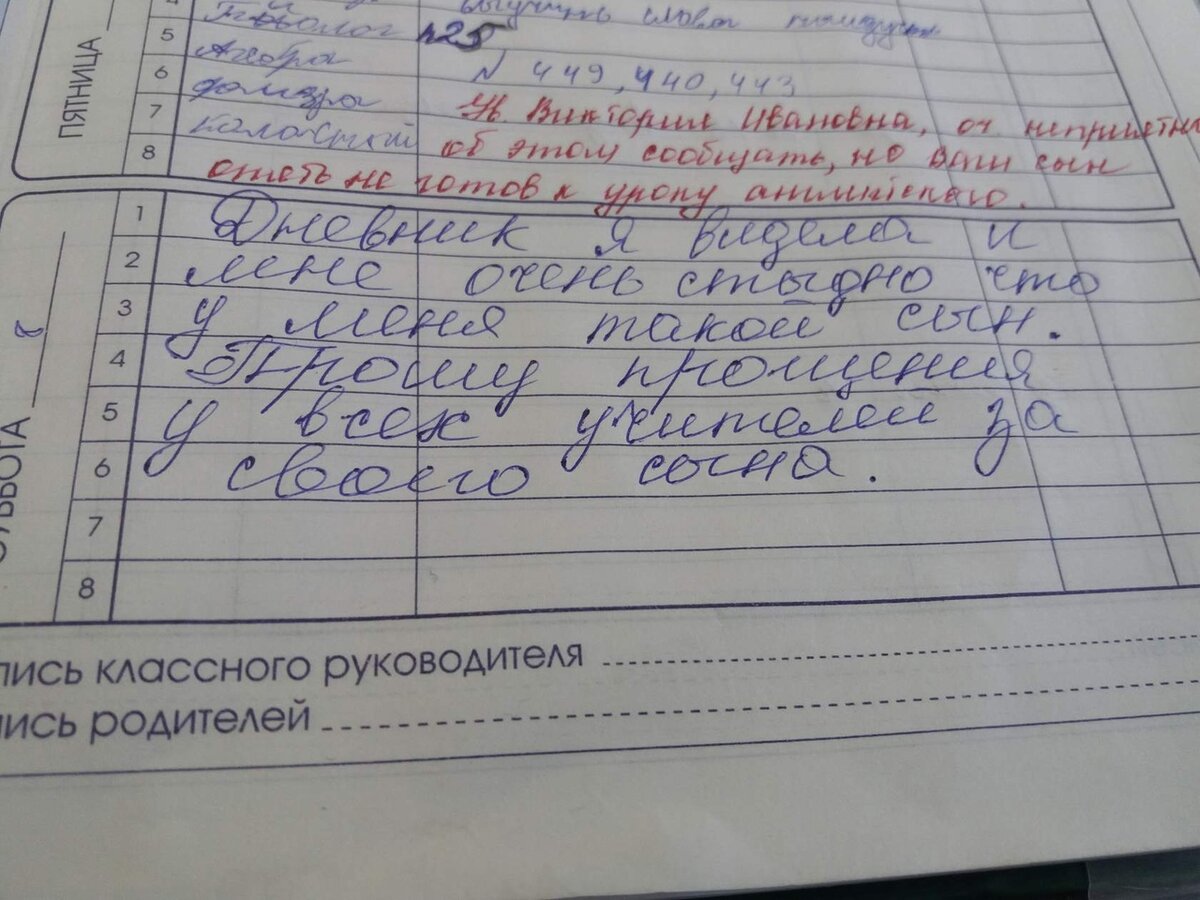 выучить слова
5 п25
ПЯТНИЦА
Алгебра N 449, 440, 443
6
7 Ув. Виктория Ивановна, оч. неприятно
8 об этом сообщать, но ваш сын
опять не готов к уроку английского.
1 Дневник я видела и
2 мне очень стыдно что
3 у меня такой сын.
4 Прошу прощения
5 у всех учителей за
6 своего сына.
7
8
ББОТА
пись классного руководителя
ись родителей